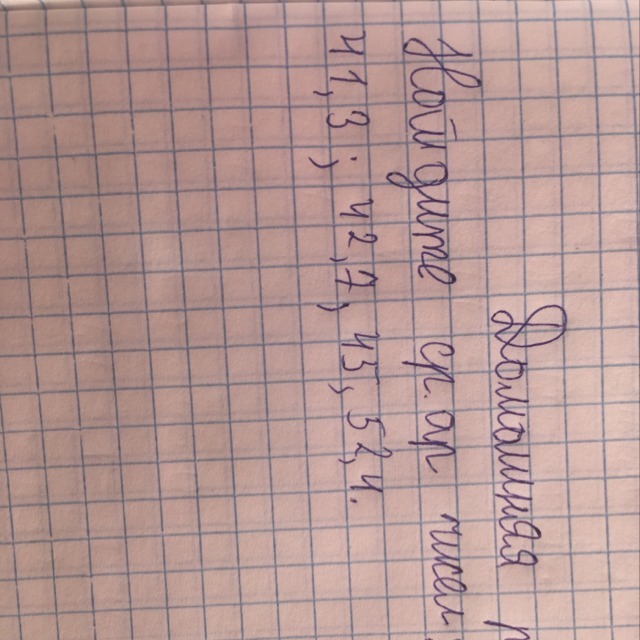 Домашняя
Найдите ср. ар. чисел
41,3; 42,2; 45; 52,4.